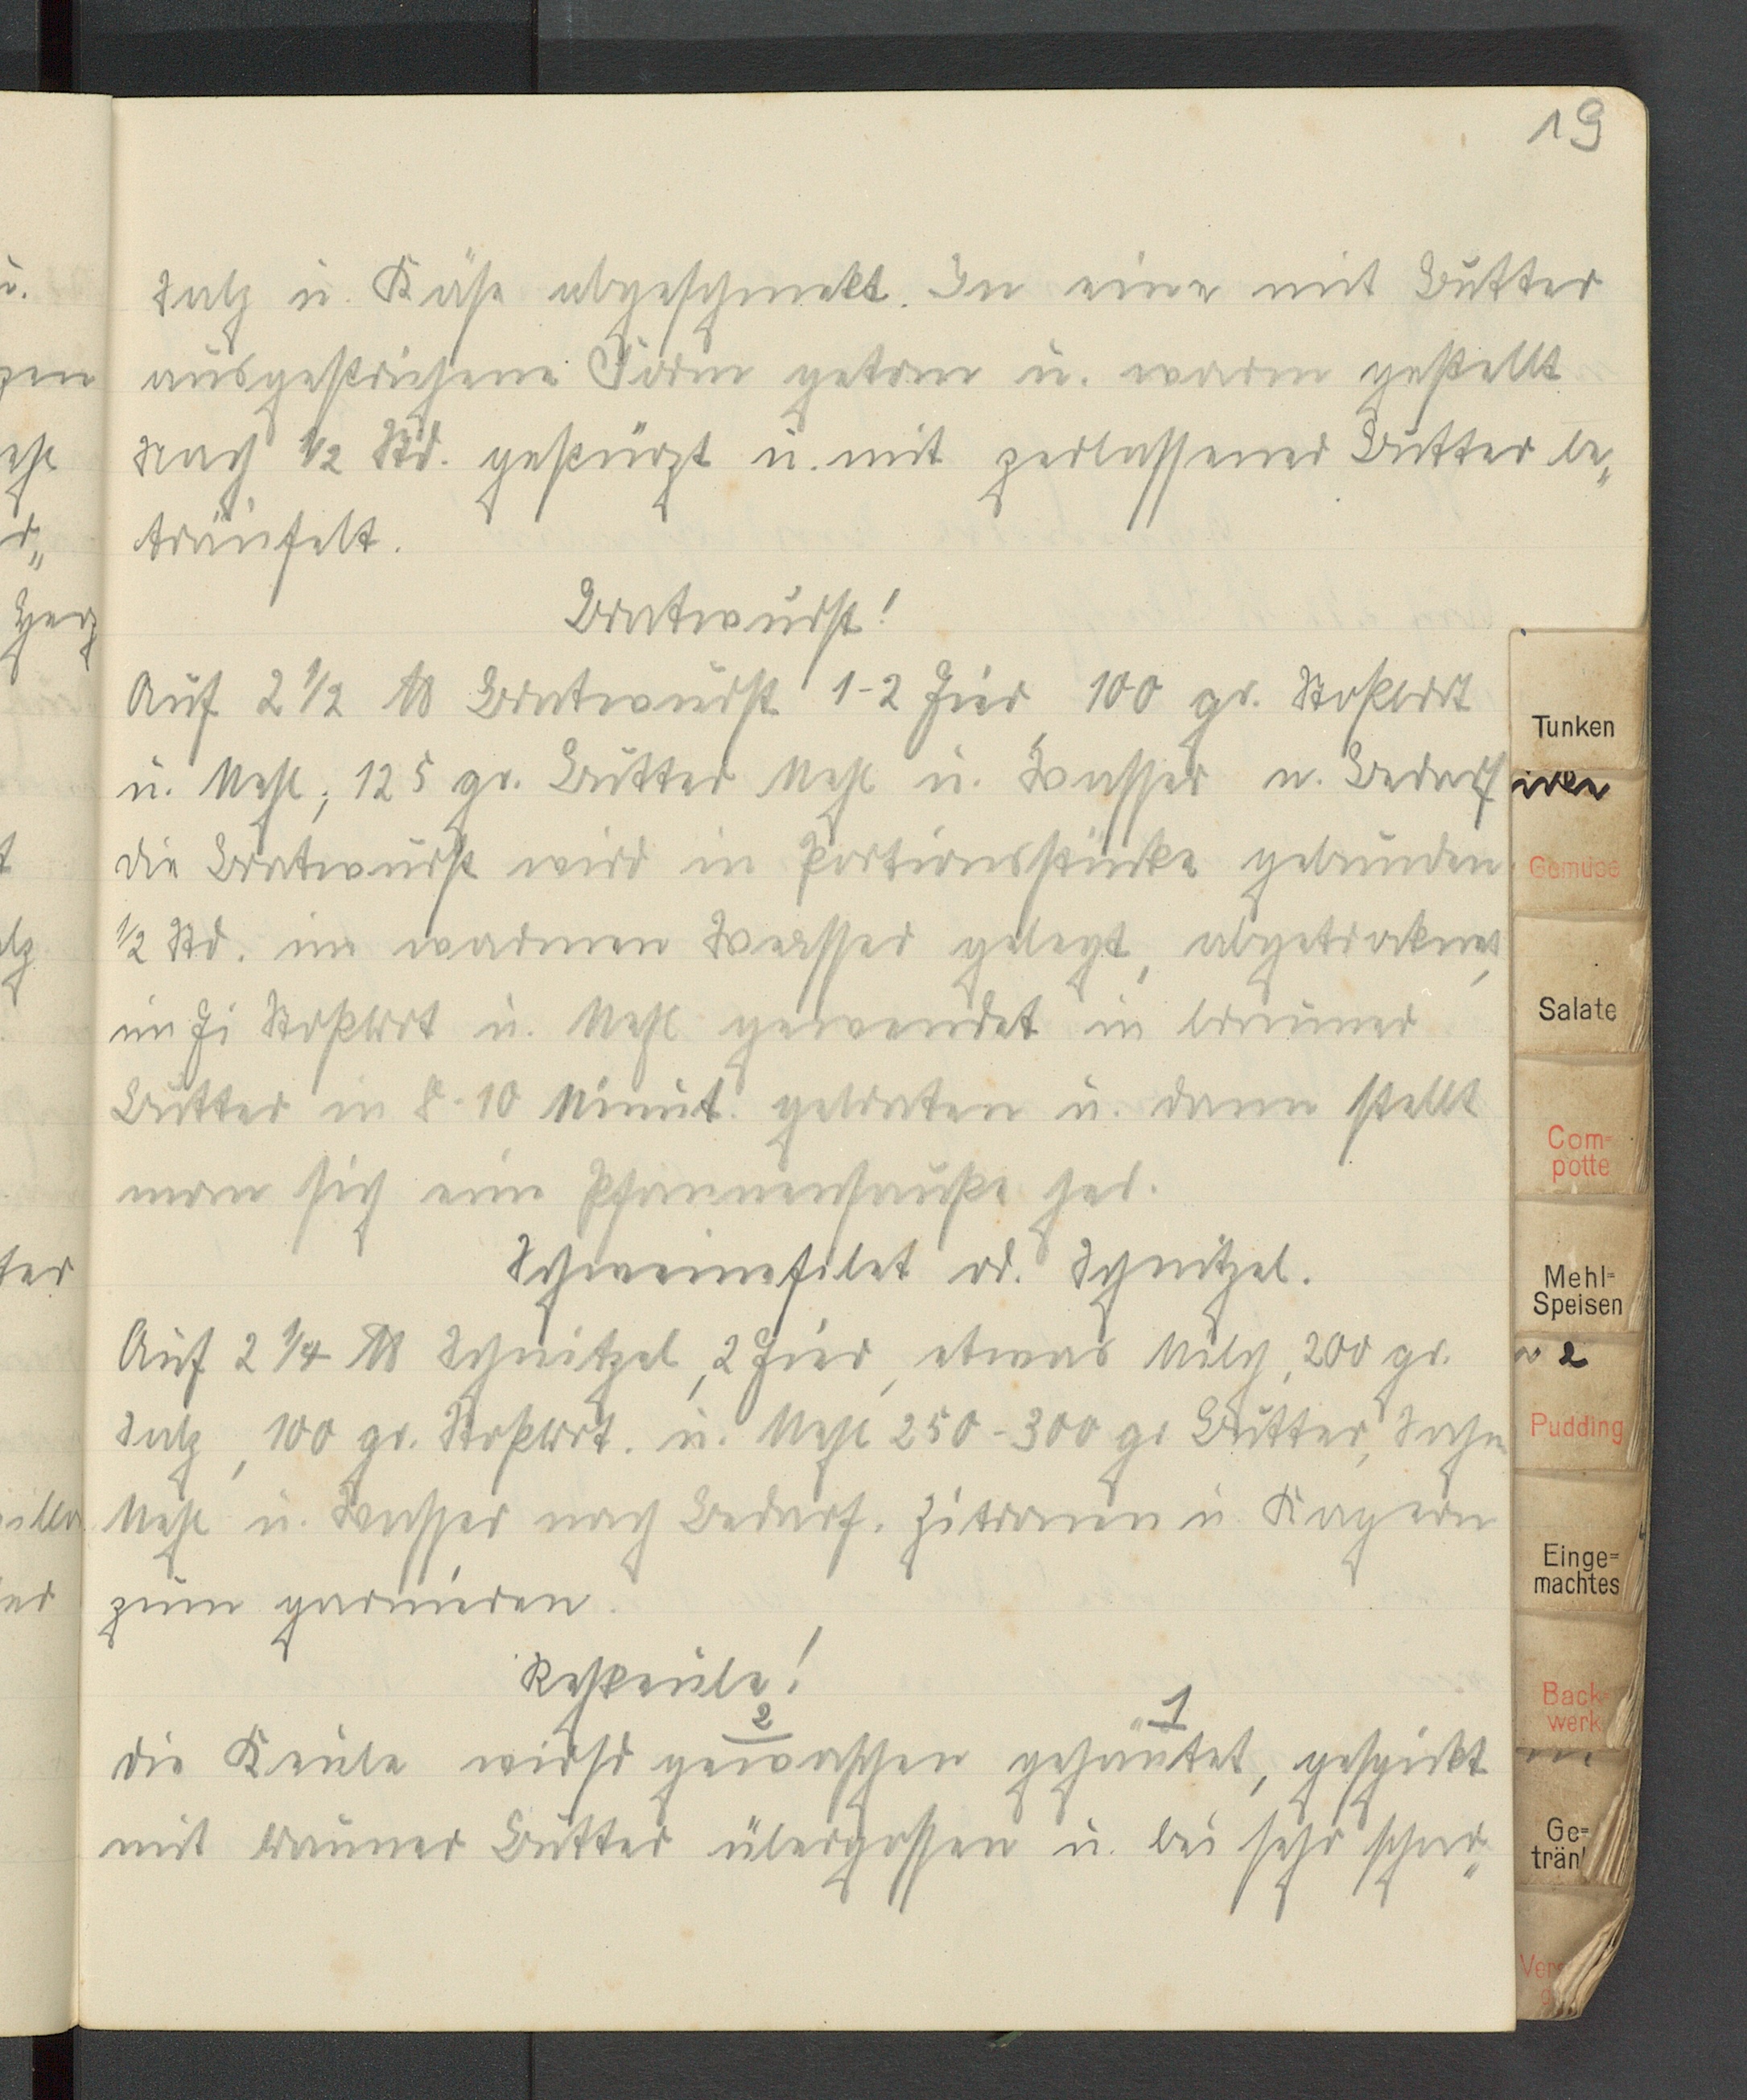 19
Salz u. Käse abgeschmekt. In eine mit Butter
ausgestrichene Form getan u. warm gestellt
Nach 1/2 Std. gestürzt u. mit zerlassener Butter be„
träufelt.
Bratwurst!
Auf 2 1/2 ℔ Bratwurst 1-2 Eier, 100 gr. Stoßbrt
u. Mehl, 125 gr. Butter Mehl u. Wasser n. Bedarf
die Bratwurst wird in Portionsstücke gebunden
1/2 Std. im warmen Wasser gelegt, abgetroknet,
in Ei Stoßbrt u. Mehl gewendet in brauner
Butter in 8-10 Minut. gebraten u. dann stellt
man sich eine Pfannensauße her.
Schweinefilet od. Schnitzel.
Auf 2 1/4 ℔ Schnitzel, 2 Eier, etwas Milch, 200 gr.
Salz, 100 gr. Stoßbrt. u. Mehl 250-300 gr Butter, Sahn
Mehl u. Wasser nach Bedarf. Zitronen u. Kapern
zum garnieren.
Rehkeule!
2 1
die Keule wird gewaschen gehäutet, gespickt
mit brauner Butter übergossen u. bei sehr schar„
Tunken
Gemüse
Salate
Com-
potte
Mehl-
Speisen
2
Pudding
Einge-
machtes
Back-
werk
Ge-
trän
Ver